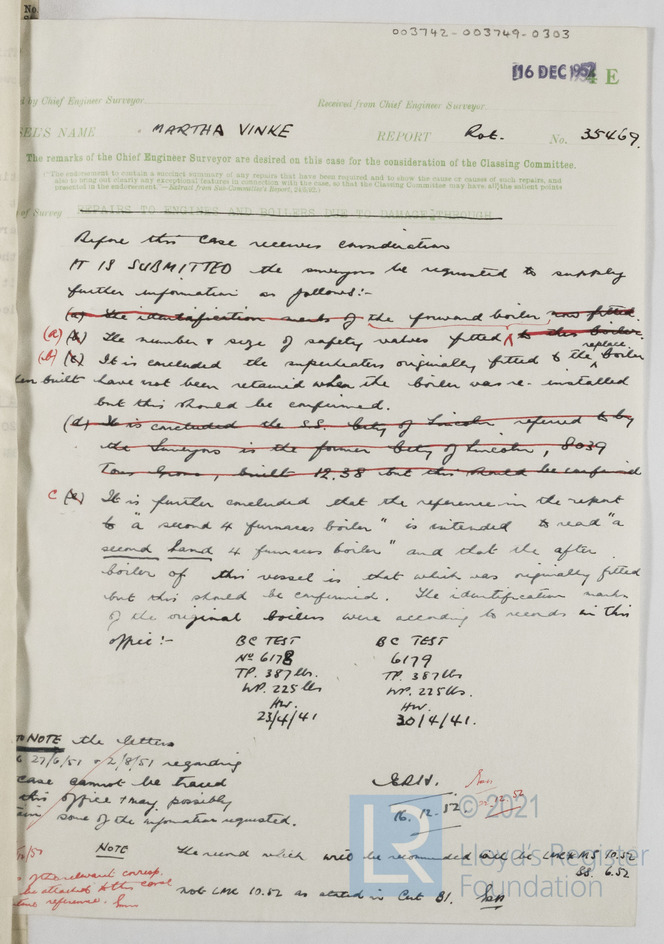 No
003742-003749-0303
16 DEC 1952 E
d by Chief Engineer Surveyor
Received from Chief Engineer Surveyor
SEL'S NAME MARTHA VINKE REPORT Rot. No. 35469
The remarks of the Chief Engineer Surveyor are desired on this case for the consideration of the Classing Committee.
("The endorsement to contain a succinct summary of any repairs that have been required and to show the cause or causes of such repairs, and
also to bring out clearly any exceptional features in connection with the case, so that the Classing Committee may have all the salient points
presented in the endorsement."—Extract from Sub-Committee's Report,
of Survey REPAIRS TO ENGINES AND BOILERS DUE TO DAMAGE THROUGH
Before this case receives consideration
IT IS SUBMITTED the surveyors be requested to supply
further information as follows:-
(a) the identification marks of the forward boiler now fitted
(a) (b) The number & size of safety valves fitted to this boiler
replace
(b) (c) It is concluded the superheaters originally fitted to the boiler
when built have not been retained when the boiler was re-installed
but this should be confirmed.
(d) It is concluded the S.S. City of Lincoln referred to by
the Surveyors is the former City of Lincoln, 8039
Tons Gross, built 12.38 but this should be confirmed
C (e) It is further concluded that the reference in the report
to "a second 4 furnaces boiler" is intended to read "a
second hand 4 furnaces boiler" and that the after
boiler of this vessel is that which was originally fitted
but this should be confirmed. The identification marks
of the original boilers were according to records in this
office:-
BC TEST BC TEST
No 6178 6179
TP. 387 lbs. TP. 387 lbs.
WP. 225 lbs WP. 225 lbs.
HW. HW.
23/4/41 30/4/41.
TO NOTE the letters
27/6/51 & 2/8/51 regarding
case cannot be traced
this office & may possibly
some of the information requested.
16.12.52
.12.52
© 2021
LR
Lloyd's Register
Foundation
NOTE The record which will be recommended will be LMC MS 10.52
SS. 6.52
not LMC 10.52 as stated in Cert B1.
relevant corresp.
be attached to this case
reference.